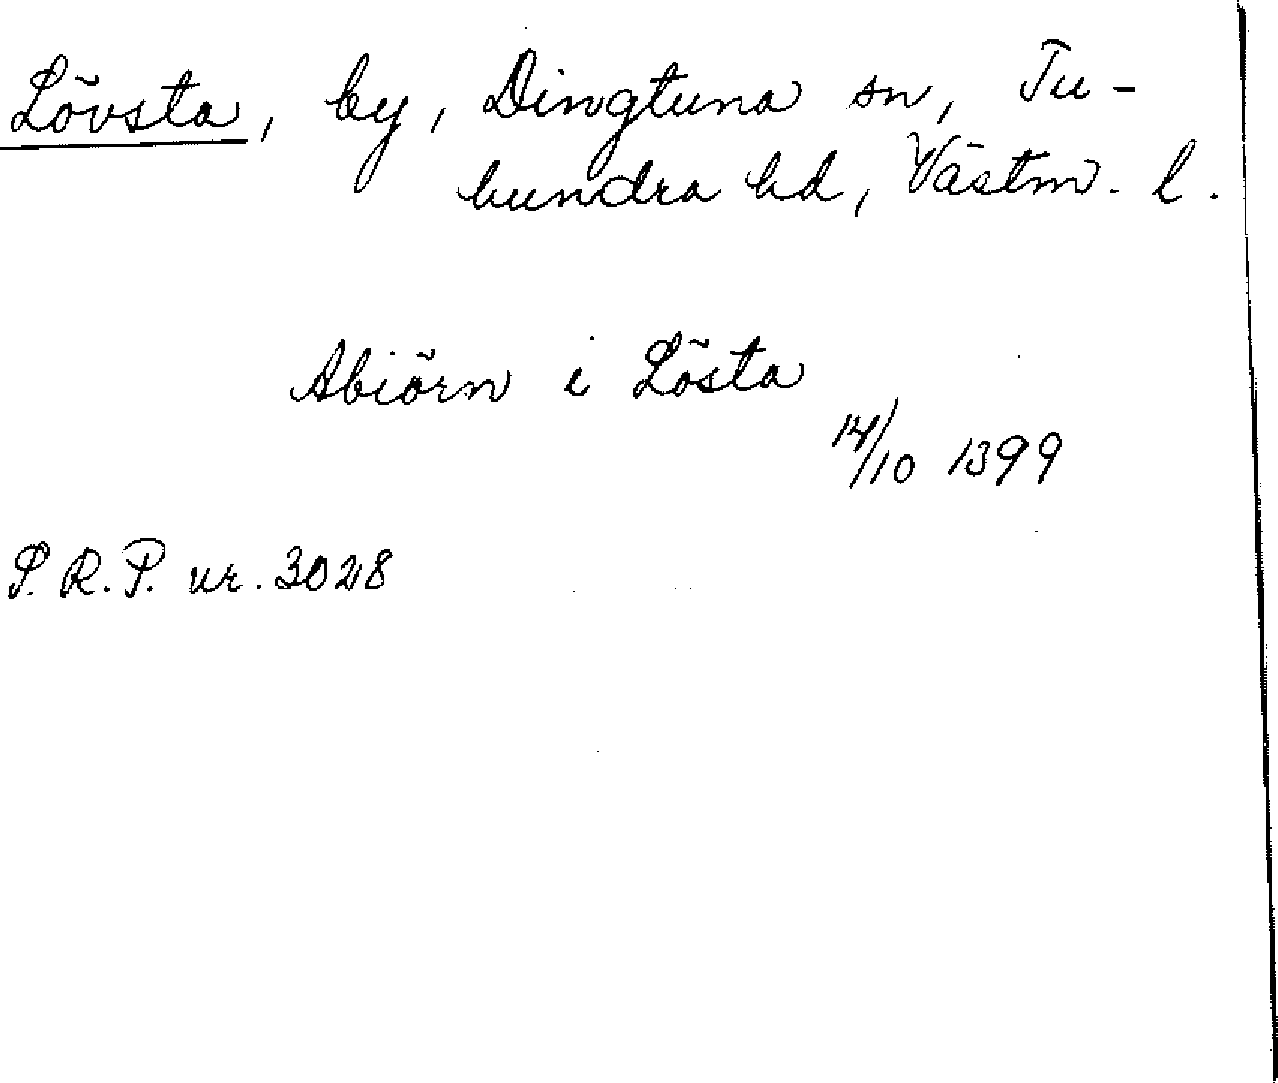 Lövsta, by, Dingtuna sn, Tu-
hundra hd, Västm. l.
Abiörn i Lösta
14/10 1399
S. R. P. nr. 3028